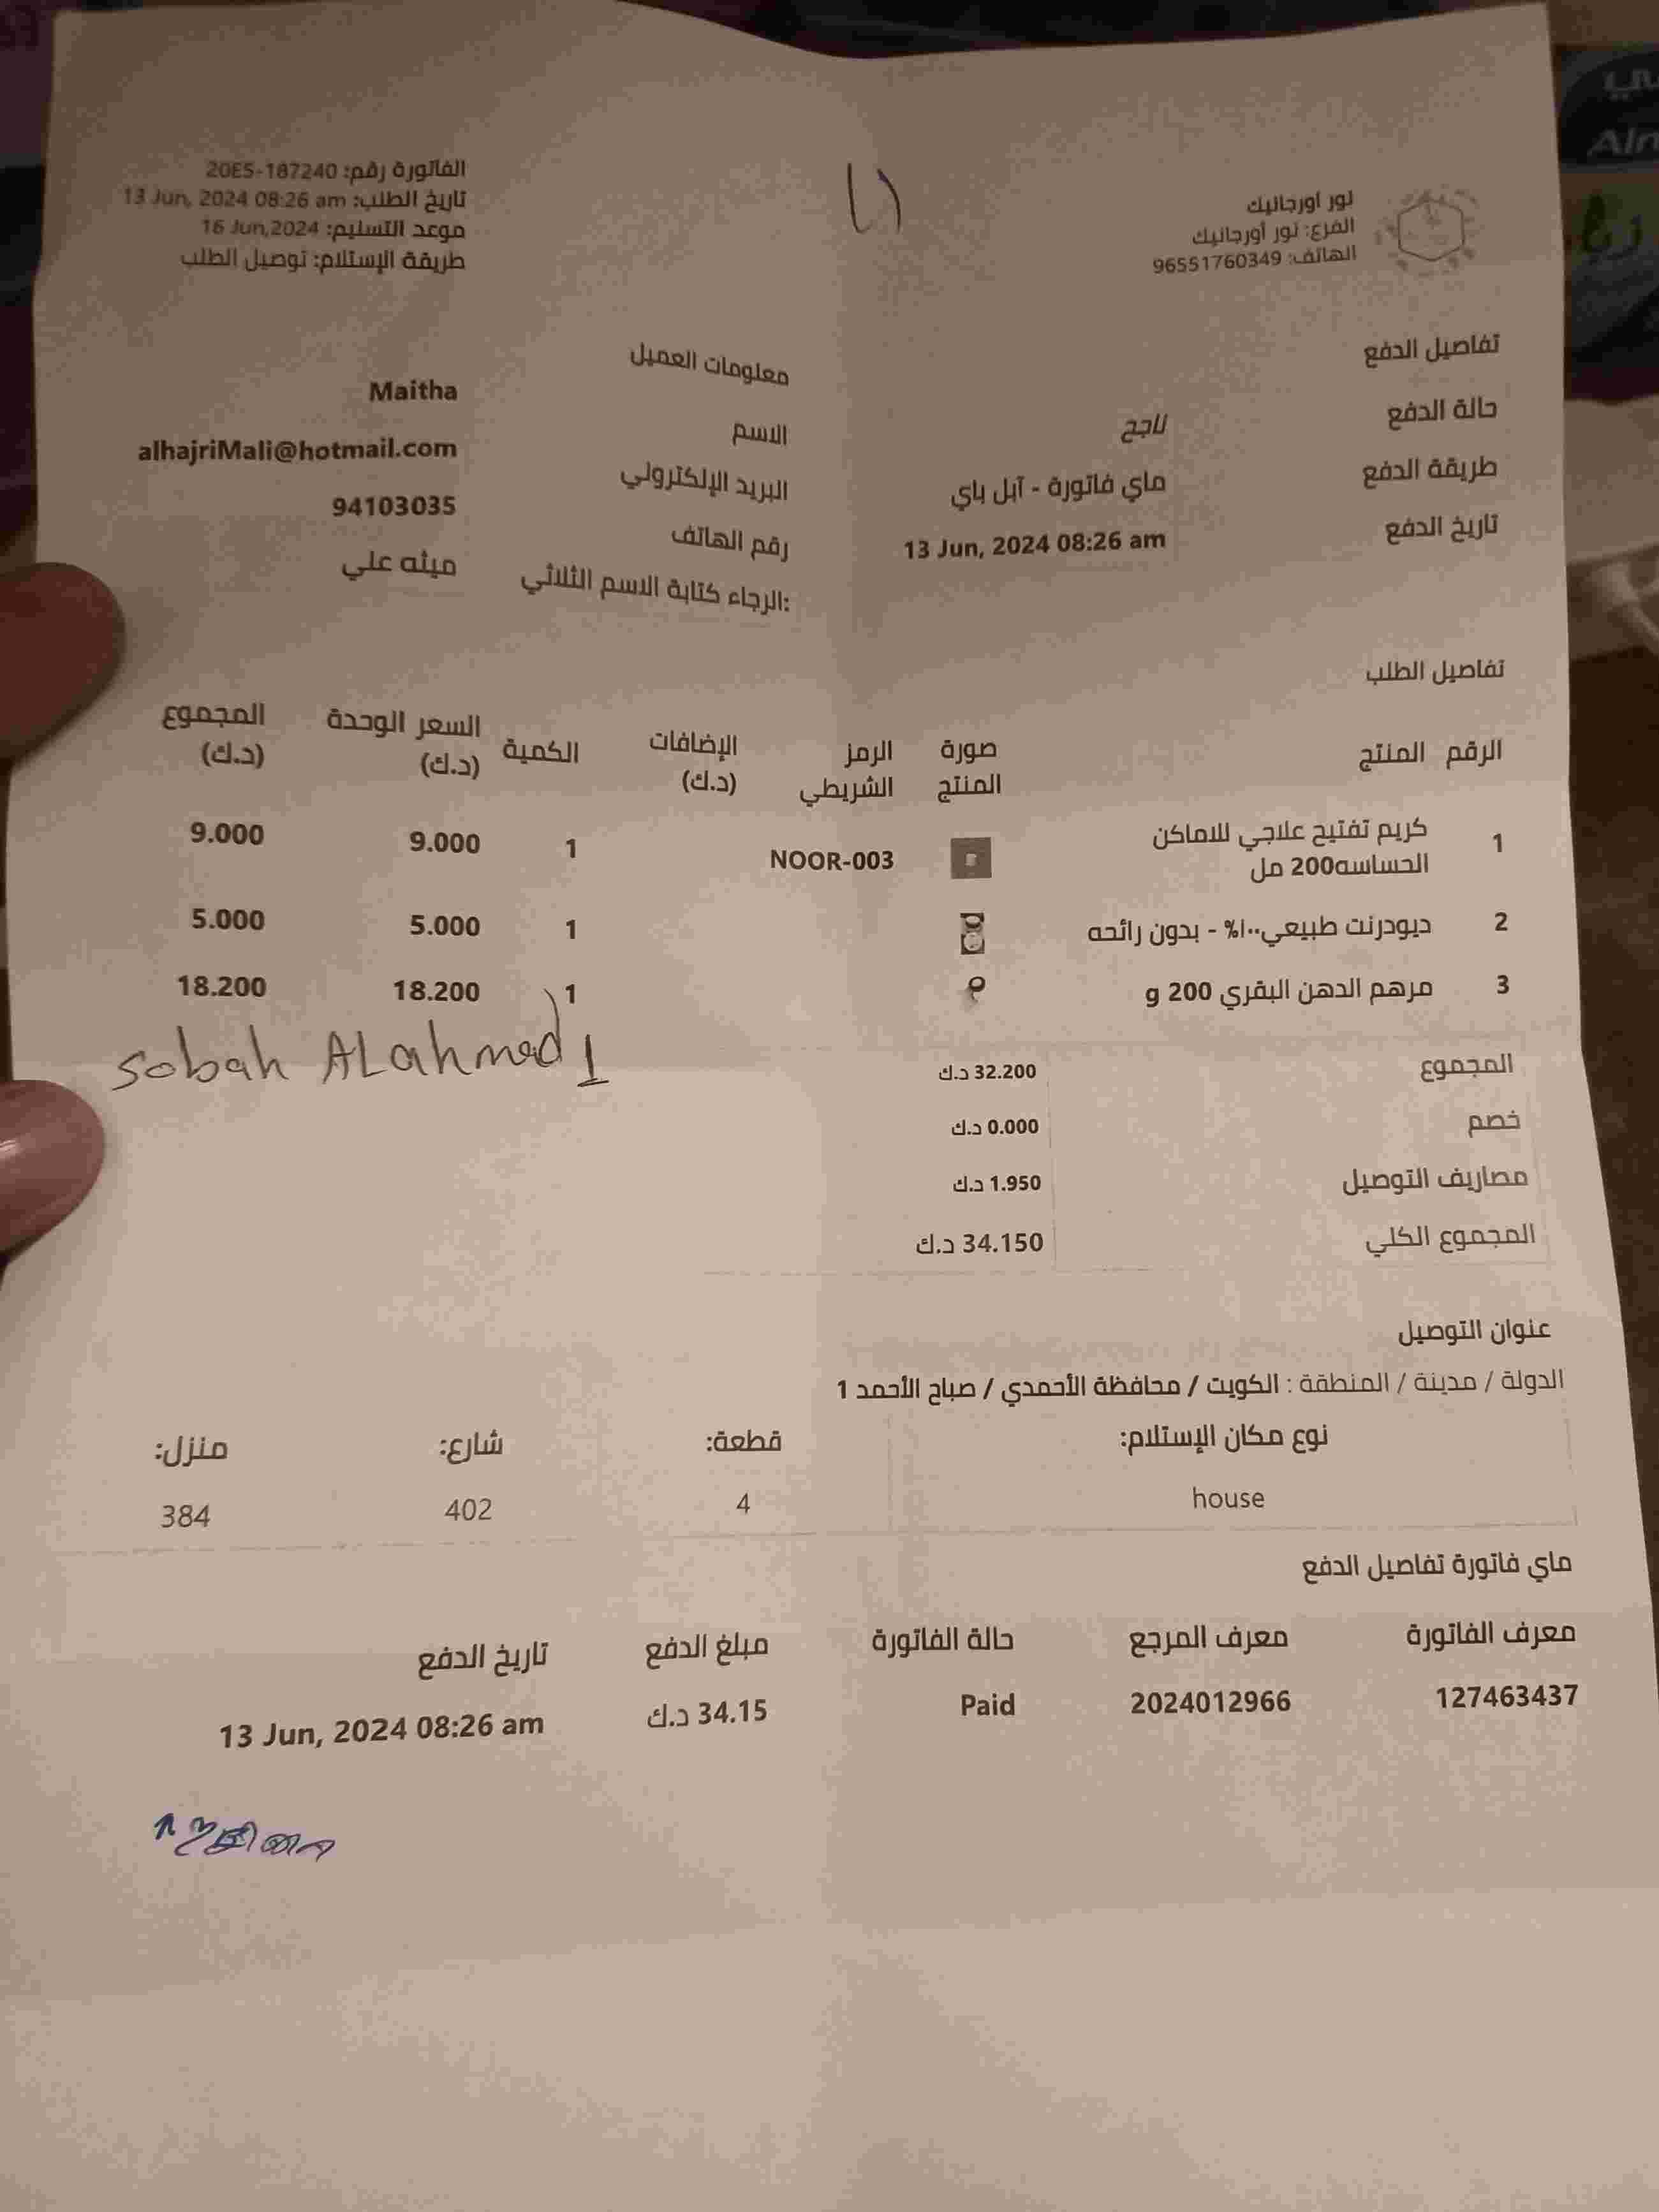 نور اورجانيك
الفرع: نور أورجانيك
الهاتف: 96551760349
الفاتورة رقم: 20E5-187240
تاريخ الطلب: 13 Jun, 2024 08:26 am
موعد التسليم: 16 Jun,2024
طريقة الإستلام: توصيل الطلب
تفاصيل الدفع
حالة الدفع ناجح
طريقة الدفع ماي فاتورة - آبل باي
تاريخ الدفع 13 Jun, 2024 08:26 am
معلومات العميل
الاسم Maitha
البريد الإلكتروني alhajriMali@hotmail.com
رقم الهاتف 94103035
الرجاء كتابة الاسم الثلاثي: ميثه علي
تفاصيل الطلب
الرقم المنتج صورة المنتج الرمز الشريطي الإضافات (د.ك) الكمية السعر الوحدة (د.ك) المجموع (د.ك)
1 كريم تفتيح علاجي للاماكن الحساسه200 مل NOOR-003 1 9.000 9.000
2 ديودرنت طبيعي١٠٠% - بدون رائحه 1 5.000 5.000
3 مرهم الدهن البقري 200 g 1 18.200 18.200
Sobah ALahmad 1
المجموع 32.200 د.ك
خصم 0.000 د.ك
مصاريف التوصيل 1.950 د.ك
المجموع الكلي 34.150 د.ك
عنوان التوصيل
الدولة / مدينة / المنطقة : الكويت / محافظة الأحمدي / صباح الأحمد 1
نوع مكان الإستلام: قطعة: شارع: منزل:
house 4 402 384
ماي فاتورة تفاصيل الدفع
معرف الفاتورة معرف المرجع حالة الفاتورة مبلغ الدفع تاريخ الدفع
127463437 2024012966 Paid 34.15 د.ك 13 Jun, 2024 08:26 am